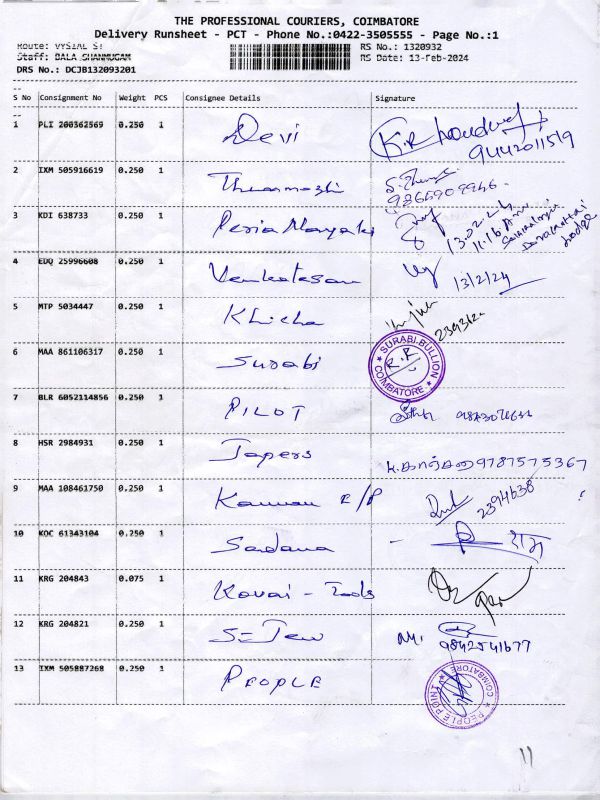 THE PROFESSIONAL COURIERS, COIMBATORE
Delivery Runsheet - PCT - Phone No.:0422-3505555 - Page No.:1
Route: VYSIAL ST RS No.: 1320932
Staff: BALA SHANMUGAM RS Date: 13-Feb-2024
DRS No.: DCJB132093201
S No Consignment No Weight PCS Consignee Details Signature
1 PLI 200362569 0.250 1 Devi K.R
9442011519
2 IXM 505916619 0.250 1
9865909946
3 KDI 638733 0.250 1 Peria Nayaki 13.02.24
11.16 Am
4 EDQ 25996608 0.250 1 Venkatesan 13/2/24
5 MTP 5034447 0.250 1
6 MAA 861106317 0.250 1 Surabi SURABI BULLION COIMBATORE R.R
7 BLR 6052114856 0.250 1 PILOT
8 HSR 2984931 0.250 1 Japers 9787575367
9 MAA 108461750 0.250 1 Kannan 2394638
10 KOC 61343104 0.250 1 Sadana राम
11 KRG 204843 0.075 1 Kovai - Tools
12 KRG 204821 0.250 1 S-Jew
9842541677
13 IXM 505887268 0.250 1 PEOPLE PEOPLE POINT COIMBATORE
11